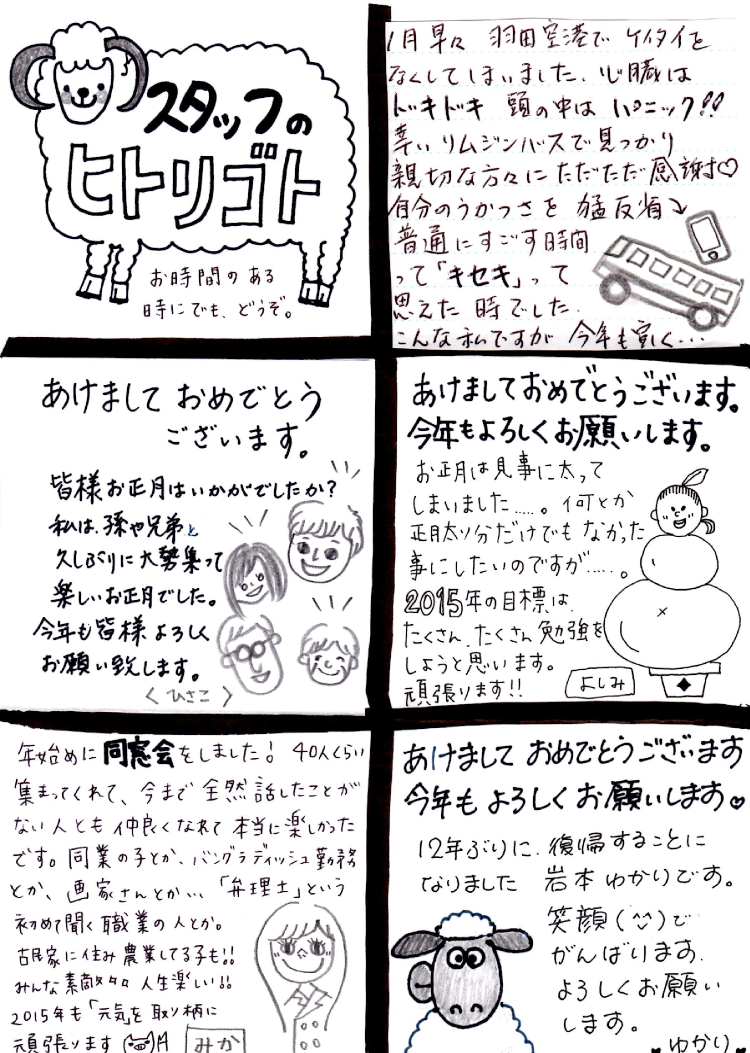 スタッフの
ヒトリゴト
お時間のある
時にでも、どうぞ。
1月早々 羽田空港で ケイタイを
なくしてしまいました、心臓は
ドキドキ 頭の中は パニック!!
幸い リムジンバスで見つかり
親切な方々に ただただ 感謝♡
自分のうかつさを 猛反省↘
普通にすごす時間
って「キセキ」って
思えた 時でした.
こんな私ですが 今年も宜く…
あけまして おめでとう
ございます。
皆様お正月はいかがでしたか?
私は、孫や兄弟と
久しぶりに大勢集って
楽しいお正月でした。
今年も皆様よろしく
お願い致します。
〈ひさこ〉
あけましておめでとうございます。
今年もよろしくお願いします。
お正月は見事に太って
しまいました……。何とか
正月太り分だけでも なかった
事にしたいのですが……。
2015年の目標は、
たくさん、たくさん 勉強を
しようと思います。
頑張ります!!
よしみ
年始めに 同窓会をしました! 40人くらい
集まってくれて、今まで 全然話したことが
ない人とも 仲良くなれて 本当に楽しかった
です。同業の子とか、バングラディッシュ勤務
とか、画家さんとか…、「弁理士」という
初めて聞く職業の人とか。
古民家に住み 農業してる子も!!
みんな素敵 人生楽しい!!
2015年も「元気」を 取り柄に
頑張ります
みか
あけまして おめでとうございます
今年も よろしく お願いします♥
12年ぶりに、復帰することに
なりました 岩本 ゆかりです。
笑顔(^^)で
がんばります.
よろしくお願い
します。
♥ゆかり♥